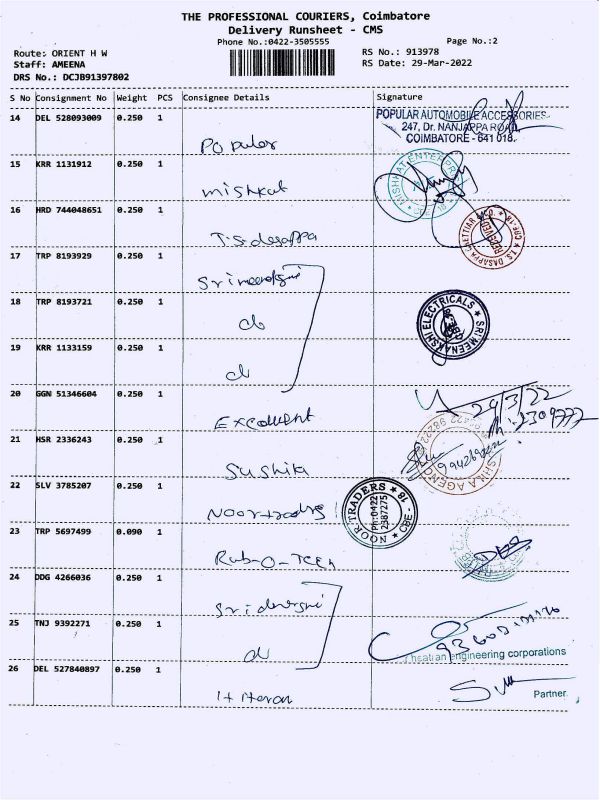 THE PROFESSIONAL COURIERS, Coimbatore
Delivery Runsheet - CMS
Phone No.:0422-3505555
Page No.:2
Route: ORIENT H W
RS No.: 913978
Staff: AMEENA
RS Date: 29-Mar-2022
DRS No.: DCJB91397802
S No Consignment No Weight PCS Consignee Details Signature
14 DEL 528093009 0.250 1 Popular
POPULAR AUTOMOBILE ACCESSORIES
247, Dr. NANJAPPA ROAD,
COIMBATORE - 641 018.
15 KRR 1131912 0.250 1 mishkat
MISHKAT ENTERPRISES
16 HRD 744048651 0.250 1 T.S. dasappa
T.S. DASAPPA CHETTIAR & CO. CBE-18
RECEIVED
17 TRP 8193929 0.250 1 Srimeenakshi
18 TRP 8193721 0.250 1 do
SRI MEENAKSHI ELECTRICALS
19 KRR 1133159 0.250 1 do
20 GGN 51346604 0.250 1 Excellent
29/3/22
Ph: 2309777
21 HSR 2336243 0.250 1 Sushila
22 SLV 3785207 0.250 1 Noor traders
NOOR TRADERS CBE - 18
Ph:0422
2387275
23 TRP 5697499 0.090 1 Rub-O-Tech
24 DDG 4266036 0.250 1
25 TNJ 9392271 0.250 1 do
engineering corporations
26 DEL 527840897 0.250 1
Partner